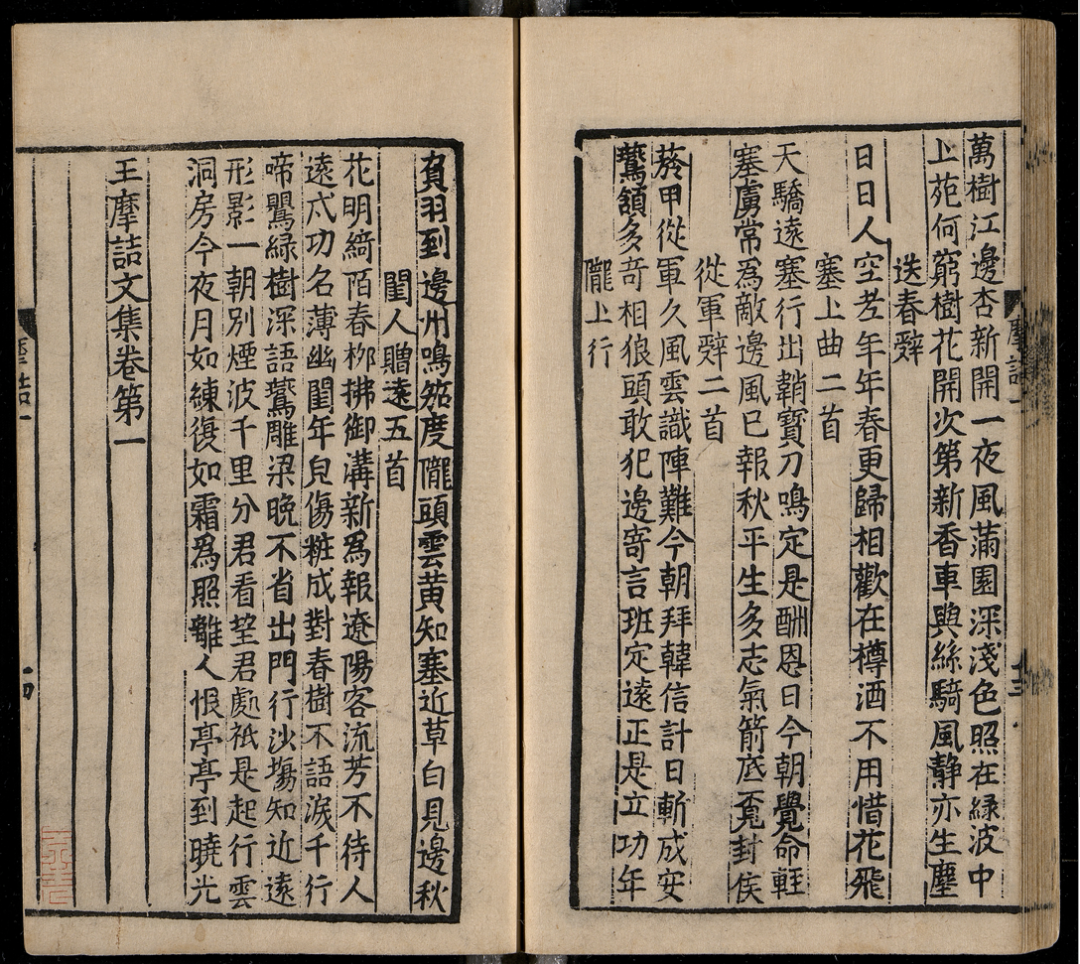 萬樹江邊杏新開一夜風滿園深淺色照在緑波中
上苑何窮樹花開次第新香車與絲騎風静亦生塵
送春辤
日日人空老年年春更歸相歡在樽酒不用惜花飛
塞上曲二首
天驕逺塞行出鞘寳刀鳴定是酬恩日今朝覺命輕
塞虜常爲敵邊風已報秋平生多志氣箭底覔封侯
從軍辤二首
甲從軍久風雲識陣難今朝拜韓信計日斬成安
鷰頷多竒相狼頭敢犯邊寄言班定逺正是立功年
隴上行
負羽到邊州鳴笳度隴頭雲黄知塞近草白見邊秋
閨人贈逺五首
花明綺陌春柳拂御溝新爲報遼陽客流芳不待人
逺戍功名薄幽閨年皃傷粧成對春樹不語淚千行
啼鸎緑樹深語鷰雕梁晚不省出門行沙塲知近逺
形影一朝别煙波千里分君看望君處祇是起行雲
洞房今夜月如練復如霜爲照離人恨亭亭到曉光
王摩詰文集卷第一